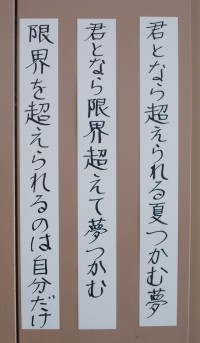 君となら超えられる夏つかむ夢
君となら限界超えて夢つかむ
限界を超えられるのは自分だけ